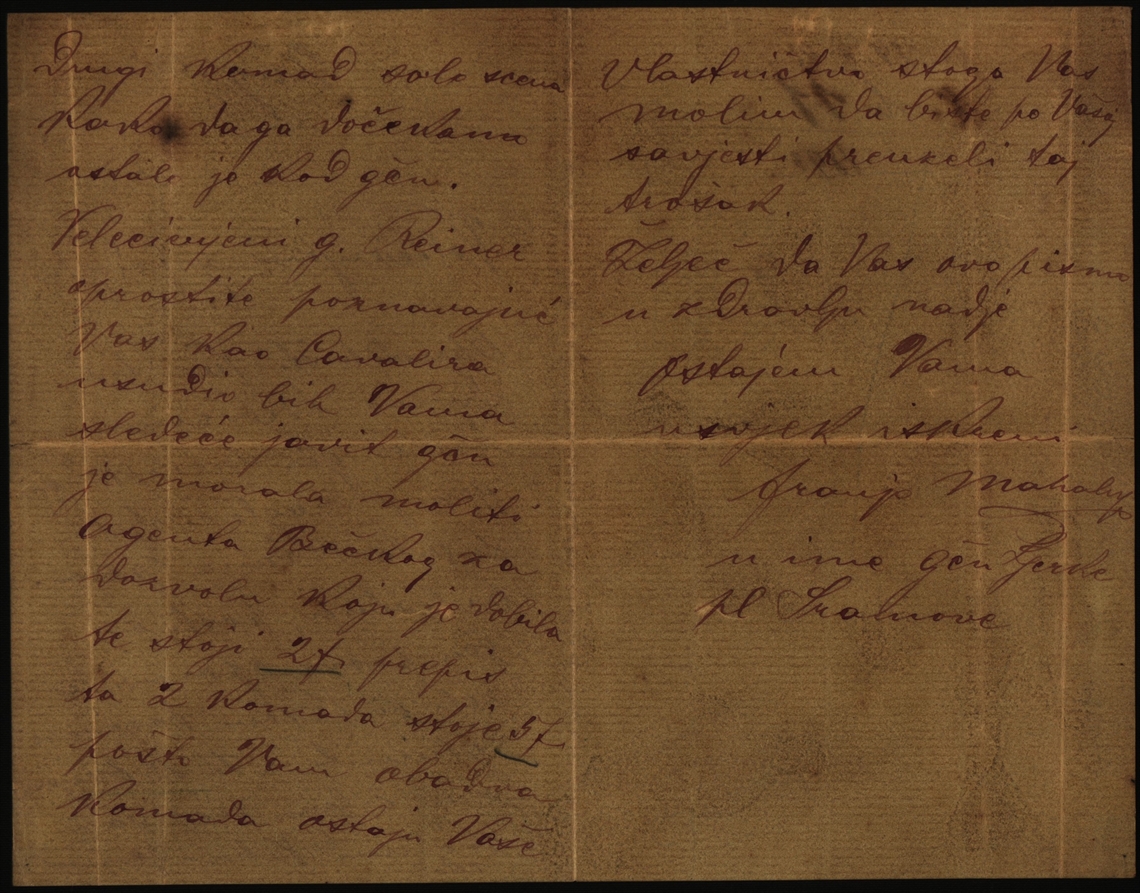 Drugi Komad solo scena
Kako da ga dočekamo
ostalo je kod gčn.
Velecijenjeni g. Reiner
oprostite poznavajuć
Vas kao Cavalira
usudio bih Vama
sledeće javit gčn
je morala moliti
Agenta Bečkog za
dozvolu koju je dobila
te stoji 2f prepis
ta 2 Komada stoje 5f
pošto Vam obadva
Komada ostaju Vaše
Vlastničtvo stoga Vas
molim da biste po Vašoj
savjesti preuzeli taj
trošak.
Želeć da Vas ovo pismo
u zdravlju nadje
ostajem Vama
uvjek iskreni
Franjo
u ime gčn
pl Sramove